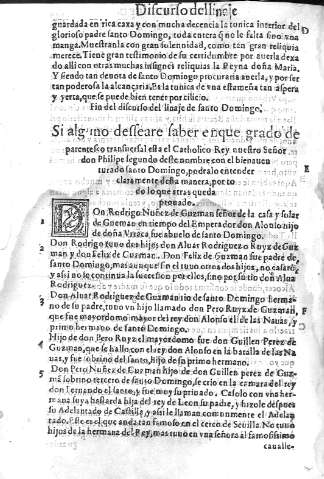 Discurso del linaje
guardada en rica caxa y con mucha decencia la tunica interior del
glorioso padre santo Domingo, toda entera q̃ no le falta sino una
manga. Muestranla con gran solenidad, como tan gran reliquia
merece. Tiene gran testimonio de su certidumbre por averla dexa
do alli con otras muchas insignes reliquias la Reyna doña Maria.
Y siendo tan devota de santo Domingo procuraria averla, y por ser
tan poderosa la alcançaria. Es la tunica de una estameña tan aspera
y yerta, que se puede bien tener por cilicio.
Fin del discurso del linaje de santo Domingo.
Si alguno desseare saber en que grado de
parentesco transuersal esta el Catholico Rey nuestro Señor
don Philipe segundo deste nombre con el bienauen
turado santo Domingo, podralo entender
claramente desta manera, por to
do lo que atras queda
prouado.
1 DOn Rodrigo Nuñez de Guzman señor de la casa y solar
de Guzman en tiempo del Emperador don Alonso hijo
de doña Vrraca fue abuelo de santo Domingo.
2 Don Rodrigo tuuo dos hijos don Aluar Rodriguez o Ruyz de Guz
man y don Felix de Guzman. Don Felix de Guzman fue padre de
santo Domingo, mas aunque sin el tuuo otros dos hijos, no casarõ,
y assi no se continua la succession por ellos, sino por su tio don Aluar
Rodriguez
3 Don Aluar Rodriguez de Guzman tio de santo Domingo herma-
no de su padre, tuuo vn hijo llamado don Pero Ruyz de Guzman,
que fue mayordomo mayor del rey don Alonso el de las Nauas, y
primo hermano de santo Domingo.
4 Hijo de don Pero Ruyz el mayordomo fue don Guillen Perez de
Guzman, que se hallo con el rey don Alonso en la batalla de las Na
uas, y fue sobrino del santo, hijo de su primo hermano.
5 Don Pero Nuñez de Guzman hijo de don Guillen perez de Guz
mã sobrino tercero de santo Domingo, se crio en la camara del rey
don Fernando el santo, y fue muy su priuado. Casolo con vna her-
mana suya bastarda hija del rey de Leon su padre, y hizole despues
su Adelantado de Castilla, y assi le llaman comunmente el Adelan
tado. Este es el que anda tan famoso en el cerco de Seuilla. No tuuo
hijos de la hermana del Rey, mas tuuo en vna señora al famosissimo
caualle-